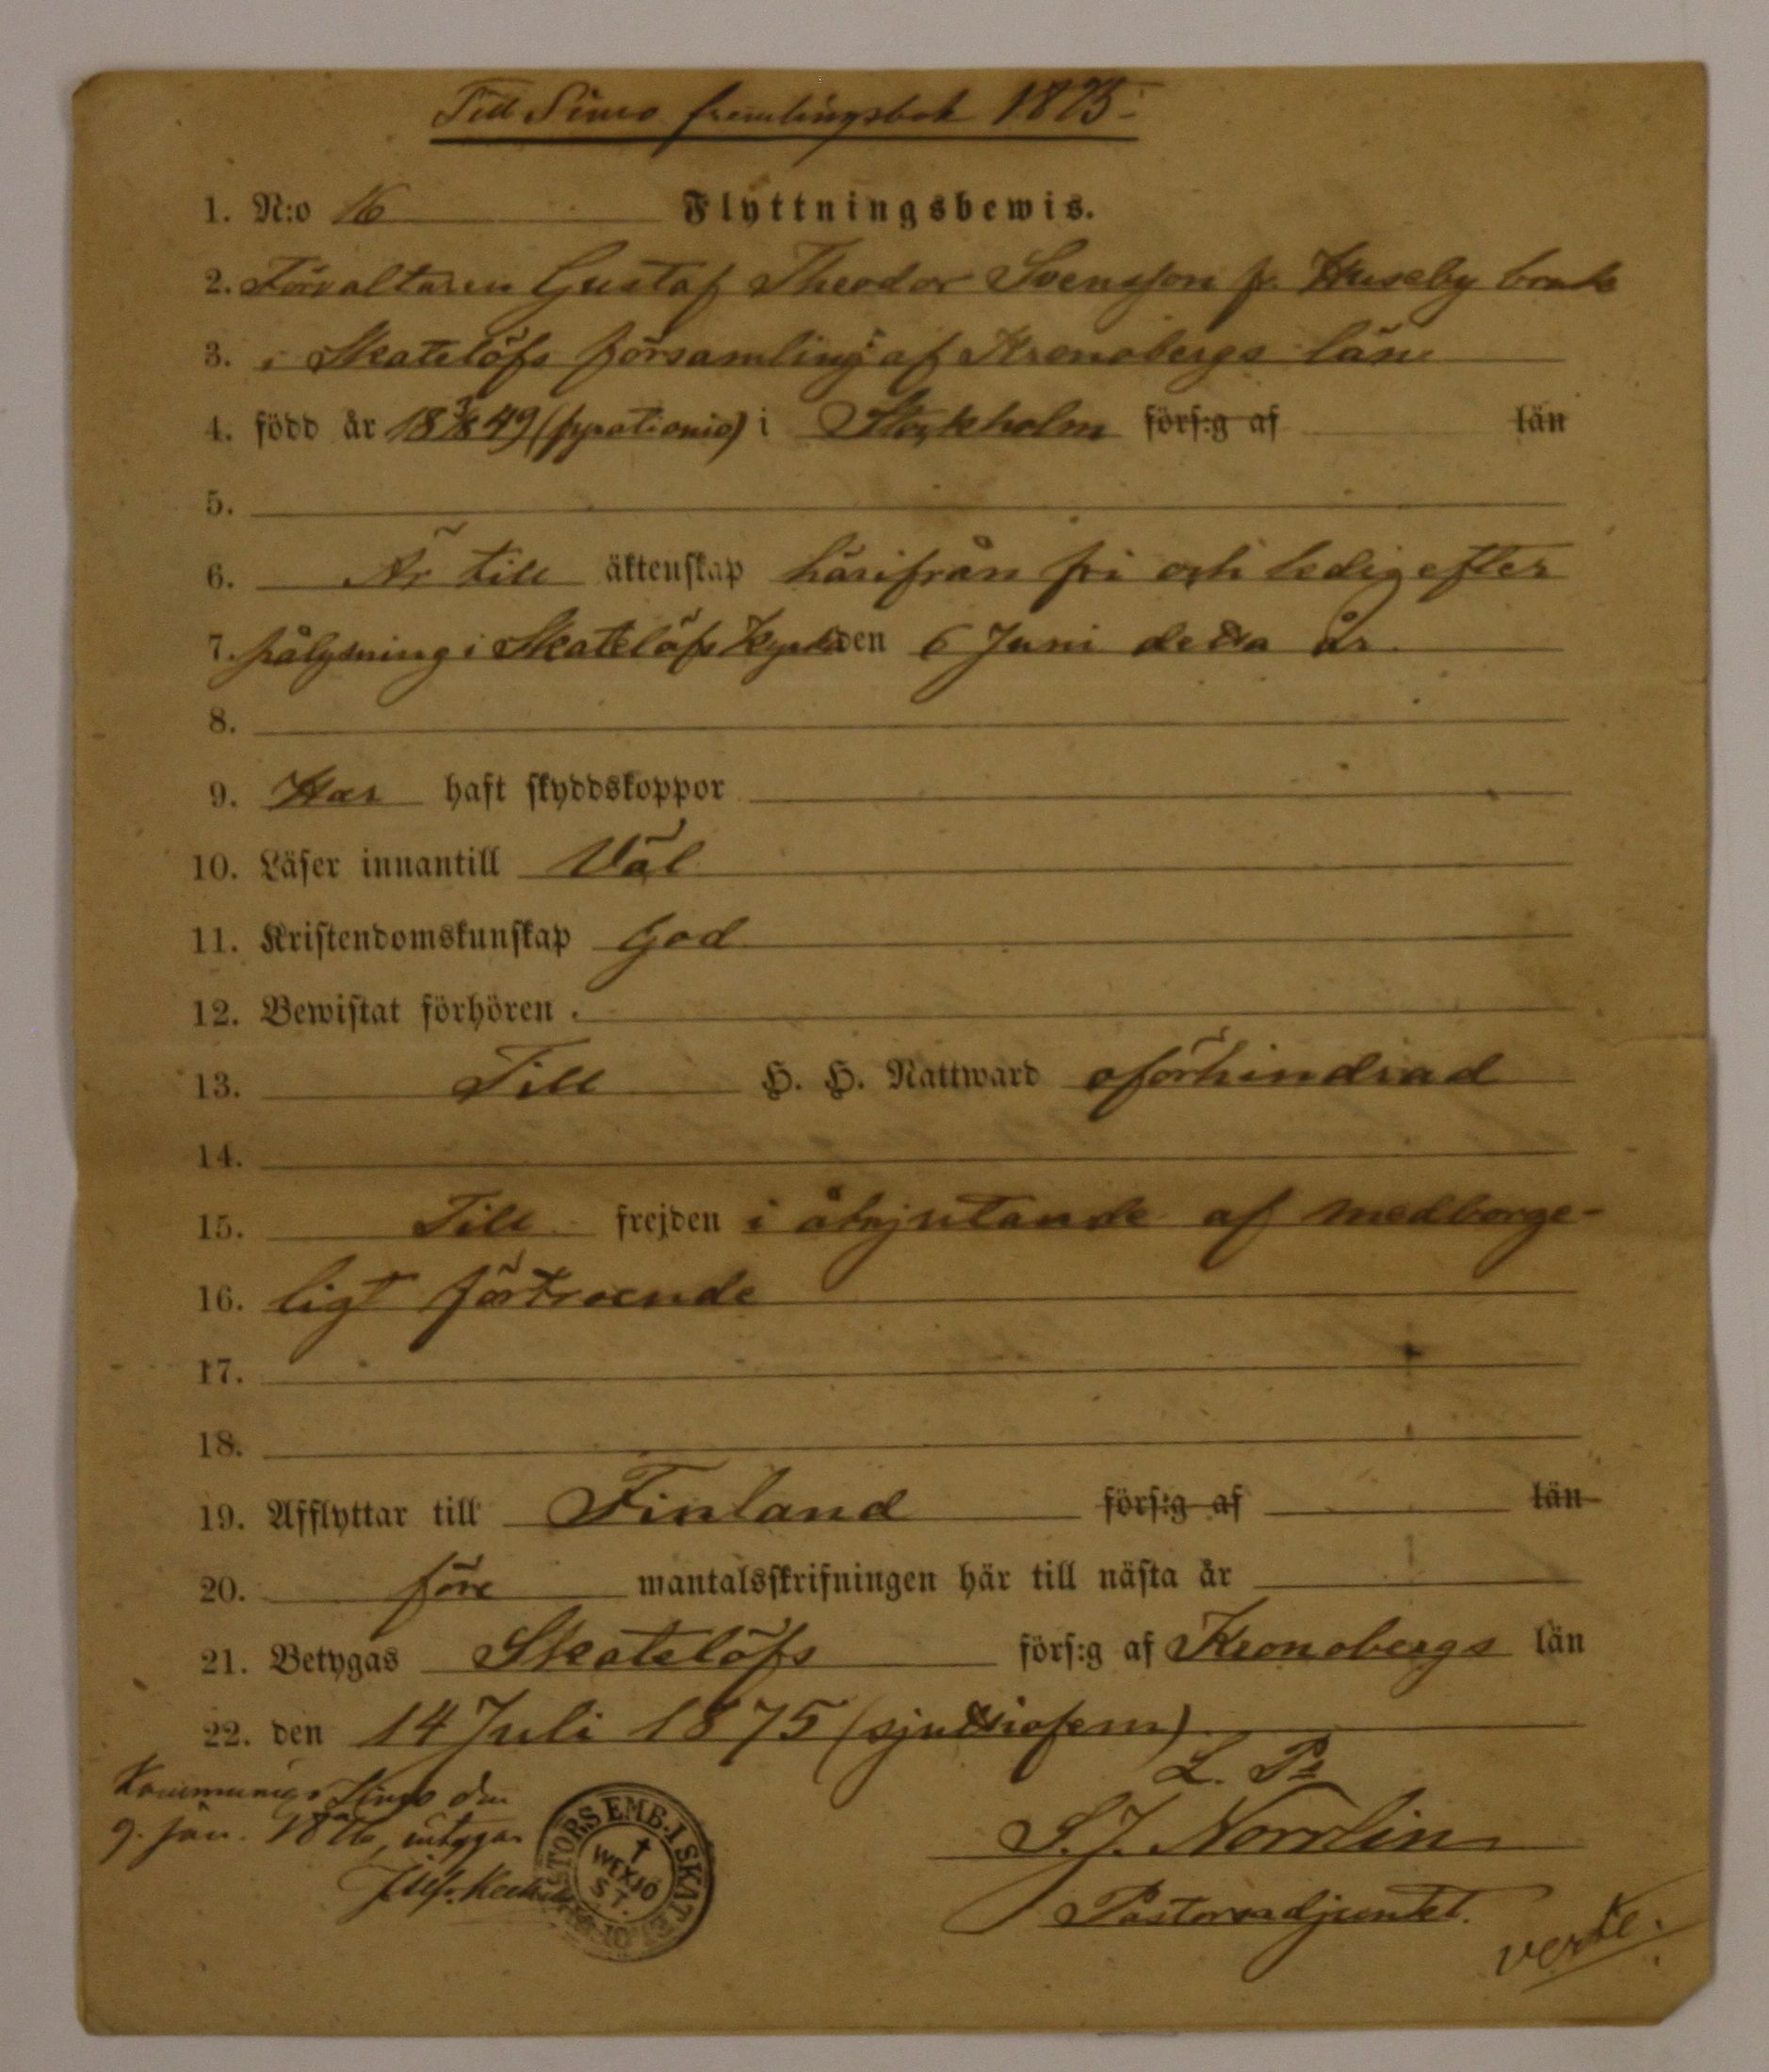 Till Simo fremlingsbok 1875.
1. N:o 16 Flyttningsbewis.
2. Förvaltaren Gustaf Theodor Svensson fr. Huseby bruk
3. i Skatelöfs församling af Kronobergs län
4. född år 18 49 (fyrationio) i Stockholm förs:g af län
5.
6. Är till äktenskap härifrån fri och ledig efter
7. pålysning i Skatelöfs Kyrka den 6 Juni detta år.
8.
9. Har haft skyddskoppor
10. Läser innantill Väl
11. Kristendomskunskap God
12. Bewistat förhören
13. Till H. H. Nattward oförhindrad
14.
15. Till frejden i åtnjutande af medborge-
16. ligt förtroende
17.
18.
19. Afflyttar till Finland förs:g af län
20. före mantalsskrifningen här till nästa år
21. Betygas Skatelöfs förs:g af Kronobergs län
22. den 14 Juli 1875 (sjuttiofem)
L. Ps
S. J. Norrlin
Pastorsadjunkt.
verte.
Simo den
9. jan. 1876, intygar
PASTORS EMB. I SKATELÖF
WEXJÖ
ST.